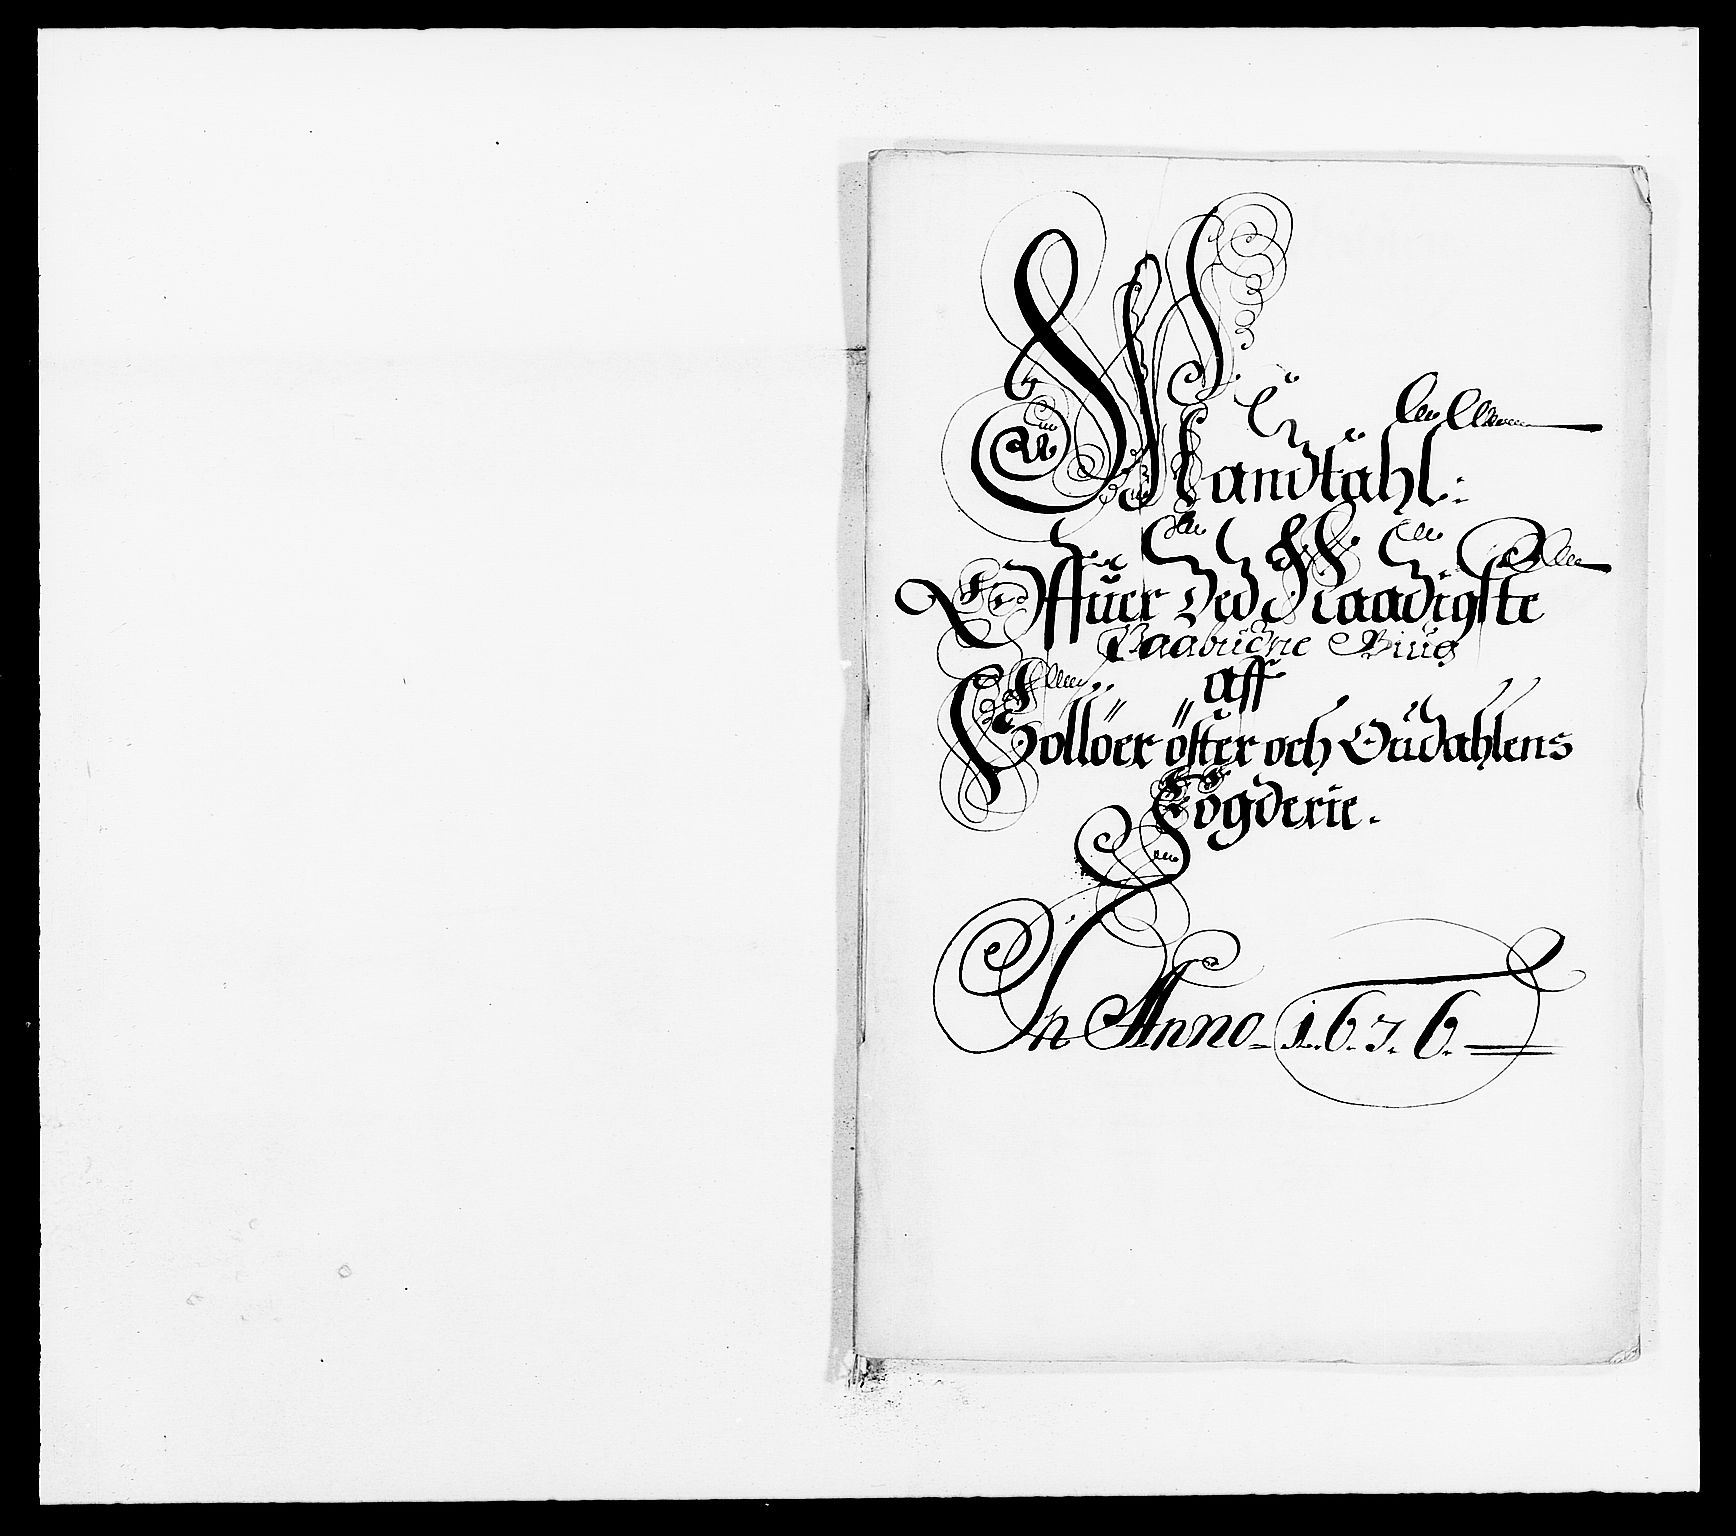 Mandtahl:
Offuer Ded Naadigste
Paabudne
aff
Sollöer öster och Oudahlens
Fogderie.
In Anno 1.6.7.6.